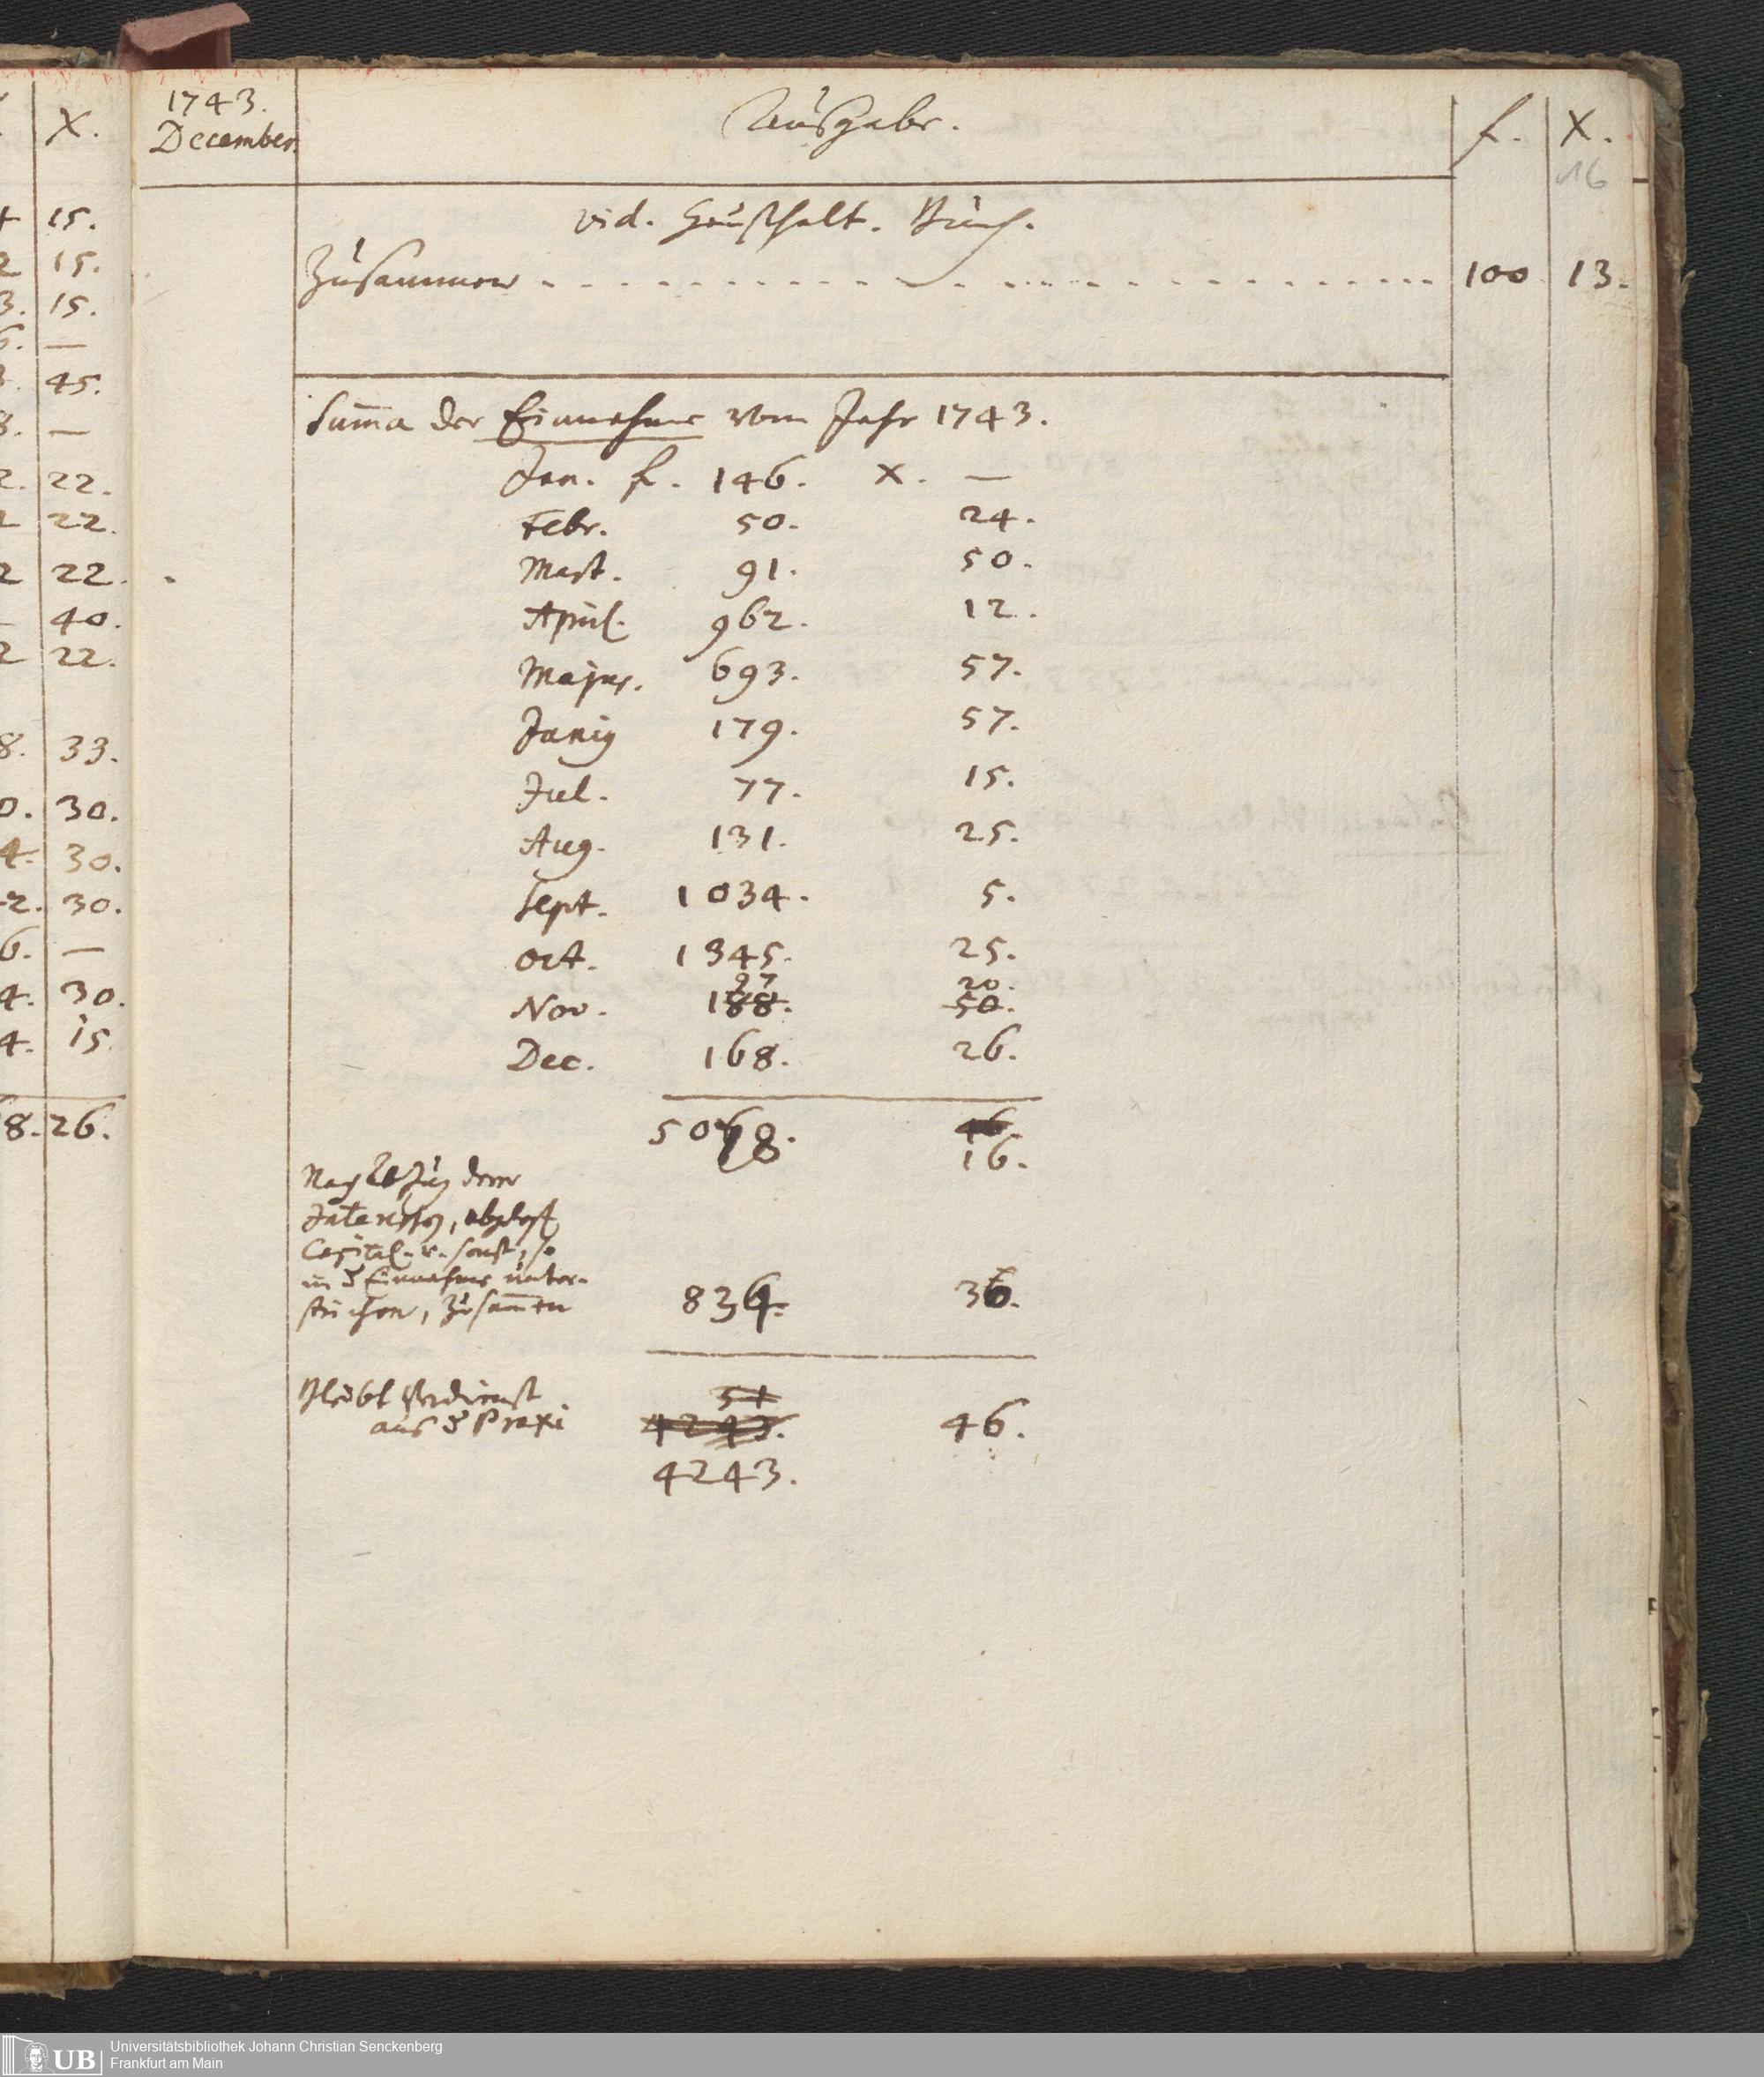 X.
15.
15.
15.
—
45.
—
22.
22.
22.
40.
22.
8. 33.
0. 30.
4. 30.
2. 30.
6. —
4. 30.
4. 15
8. 26.
1743.
December.
Ausgabe.
f. X.
16
vid. Haußhalt. Buch.
Zusammen 100 13.
Summa der Einnahme vom Jahr 1743.
Jan. f. 146. x. —
Febr. 50. 24.
Mart. 91. 50.
April. 962. 12.
Majus. 693. 57.
Junius 179. 57.
Jul. 77. 15.
Aug. 131. 25.
Sept. 1034. 5.
Oct. 1345. 25.
97 20.
Nov. 188. 50.
Dec. 168. 26.
5078. 46.
16.
Nach Abzug derer
Interessen, abgelegt
Capital. u. sonst, so
in d Einnahme unter-
strichen, zusammen 834. 30.
Bleibt Verdienst
51
aus d Praxi 4243. 46.
4243.
Universitätsbibliothek Johann Christian Senckenberg
UB Frankfurt am Main